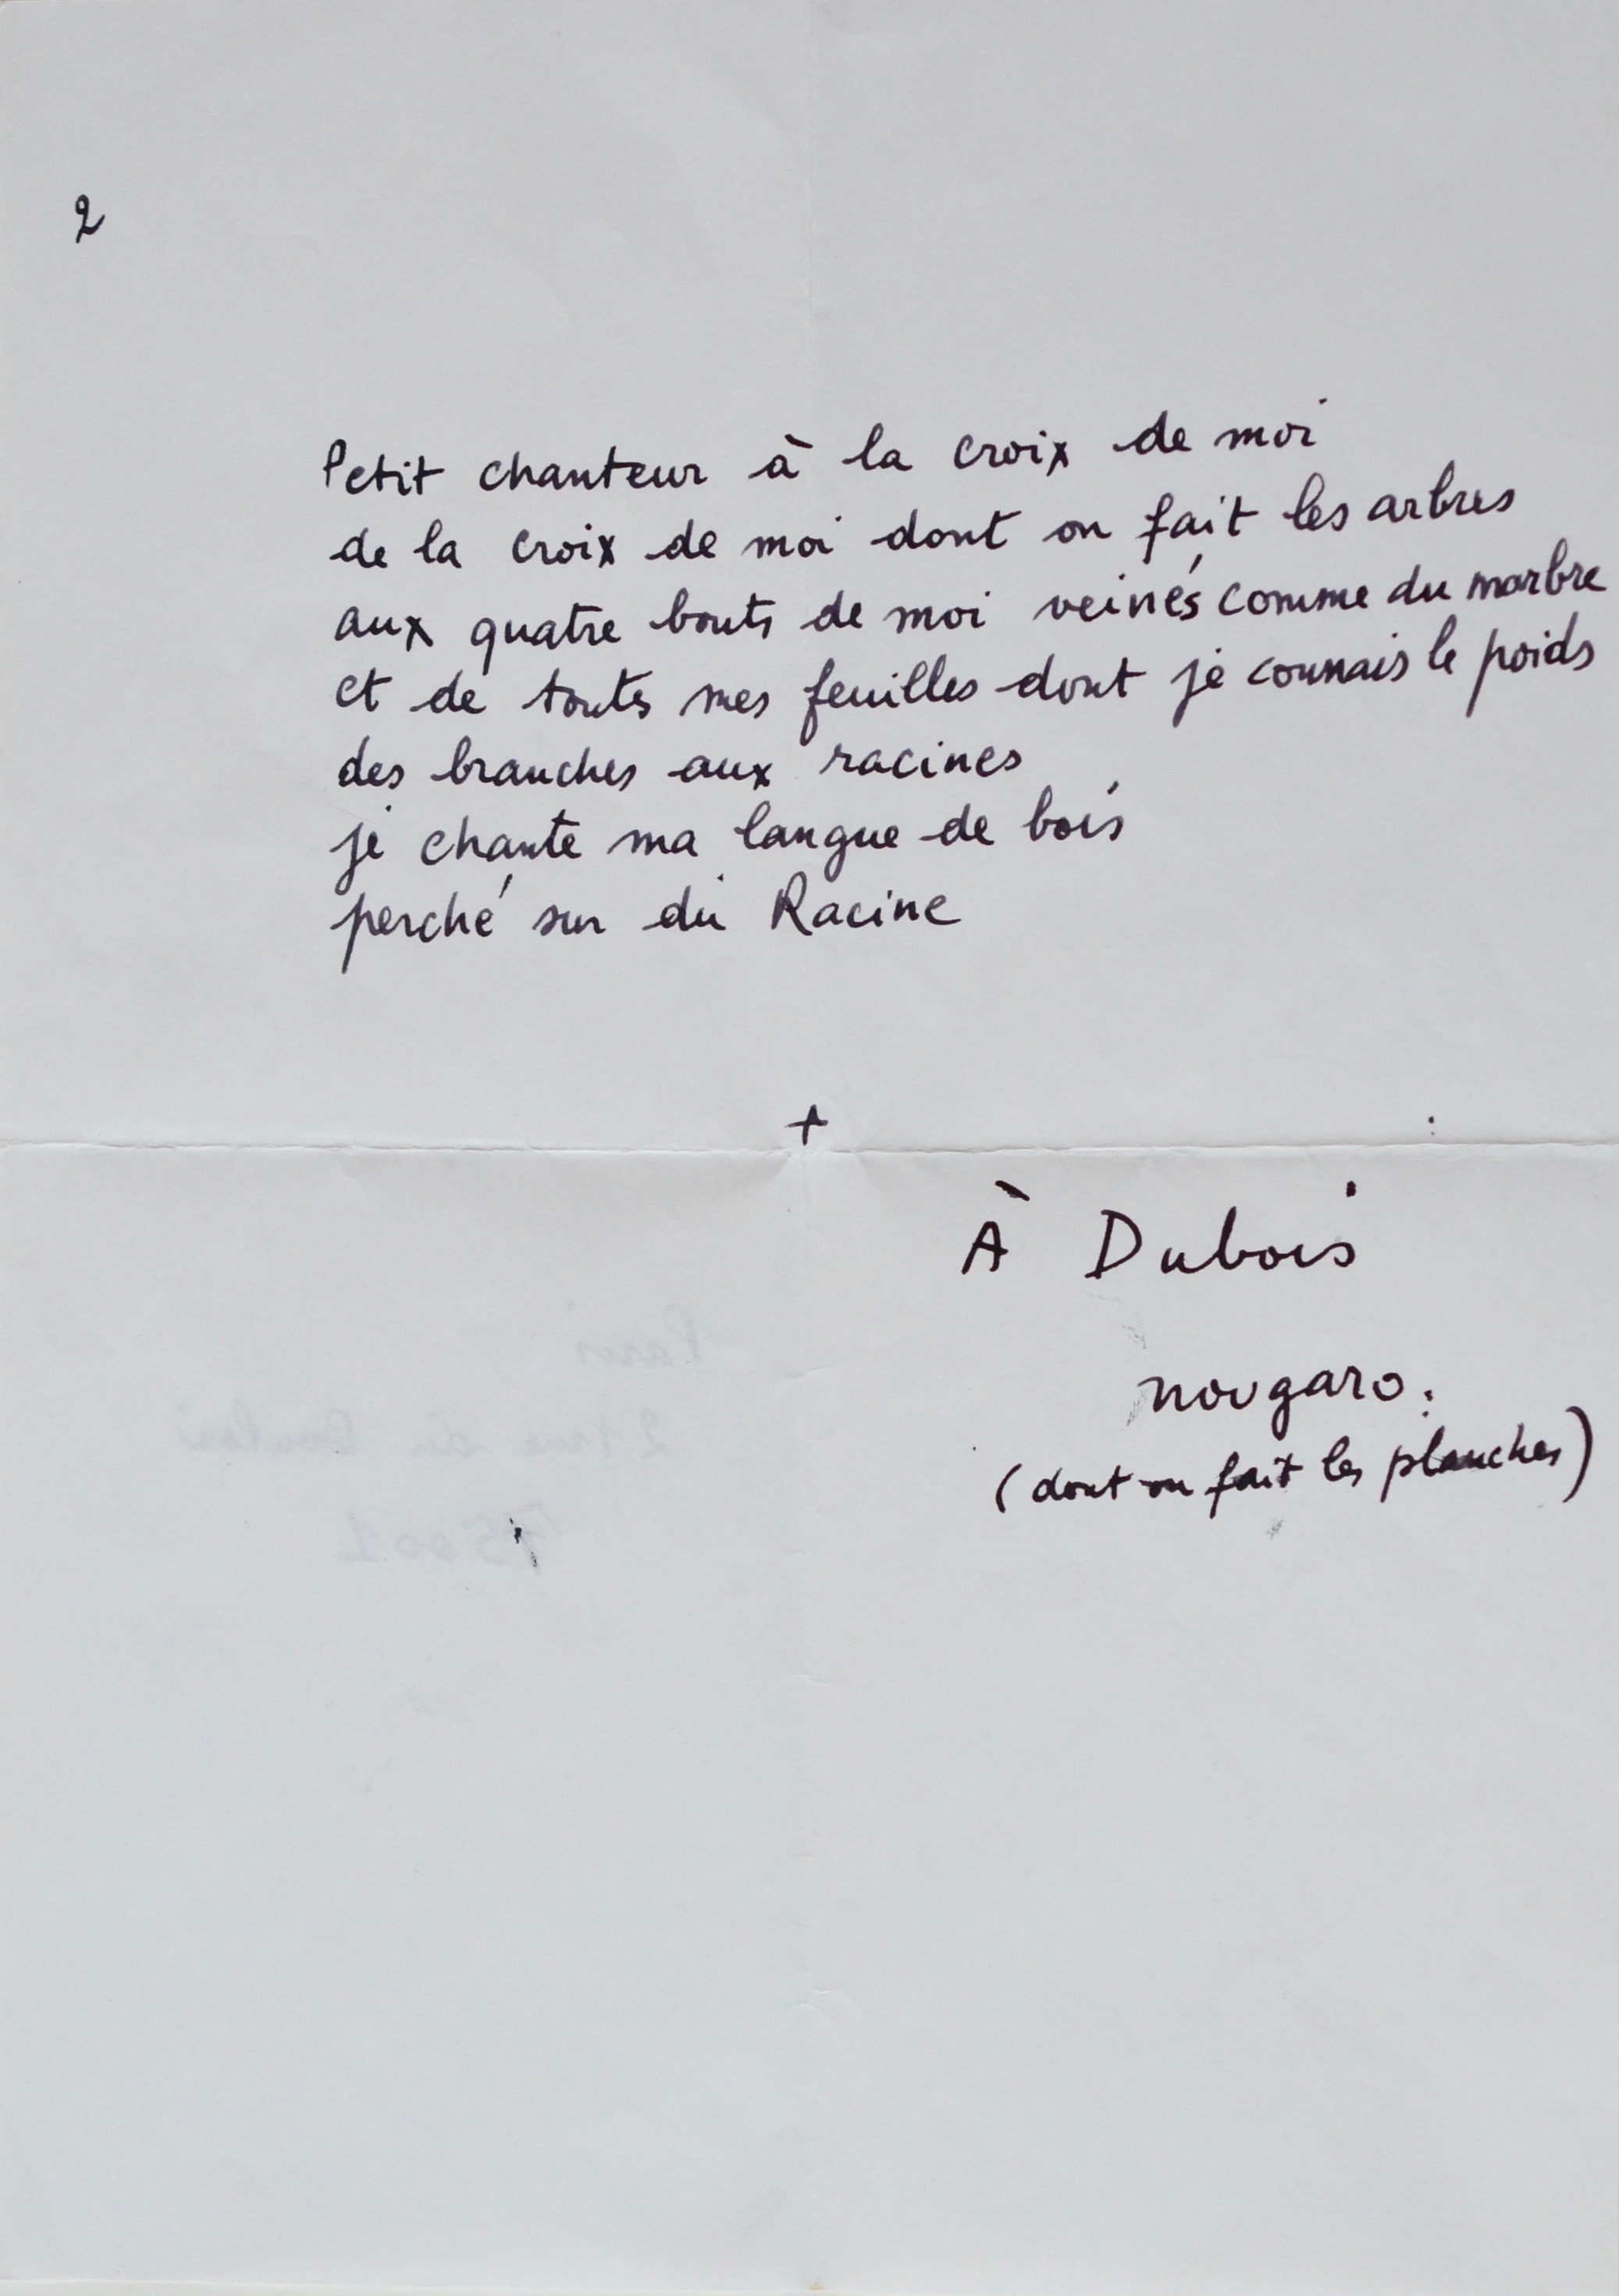 2
Petit chanteur à la croix de moi
de la croix de moi dont on fait les arbres
aux quatre bouts de moi veinés comme du marbre
et de toutes mes feuilles dont je connais le poids
des branches aux racines
je chante ma langue de bois
perché sur du Racine
+
À Dubois
nougaro.
(dont on fait les planches)
Paris
75001